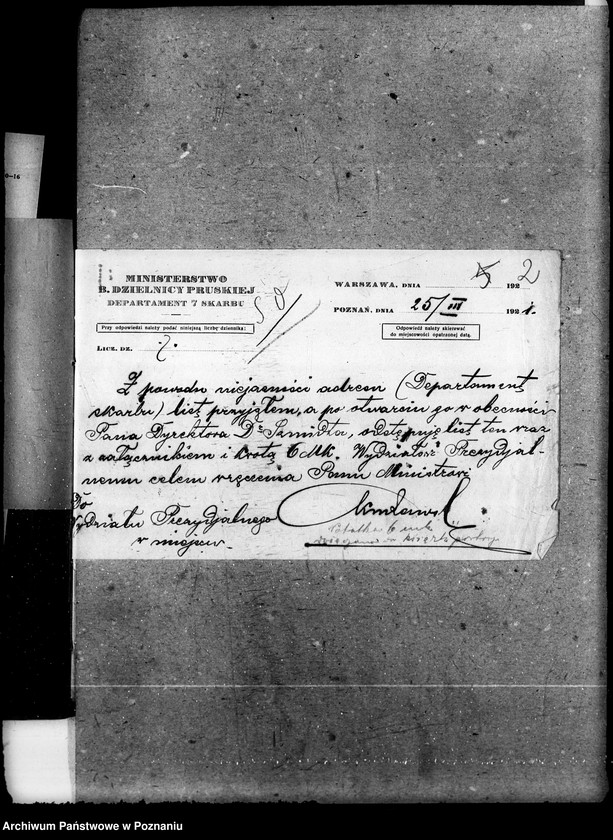 2
MINISTERSTWO
B. DZIELNICY PRUSKIEJ
DEPARTAMENT 7 SKARBU
WARSZAWA, DNIA 192
POZNAŃ, DNIA 25/III 1921.
Przy odpowiedzi należy podać niniejszą liczbę dziennika:
Odpowiedź należy skierować
do miejscowości opatrzonej datą.
LICZ. DZ.
Z powodu niejasności adresu (Departament
skarbu) list przyjąłem, a po otwarciu go w obecności
Pana Dyrektora Dra Szmidta, odstępuję list ten wraz
z załącznikiem i kwotą 6 Mk. Wydziałowi Prezydjal-
nemu celem wręczenia Panu Ministrowi
Do
Wydziału Prezydjalnego
w miejscu.
6 mk
0—16
Archiwum Państwowe w Poznaniu